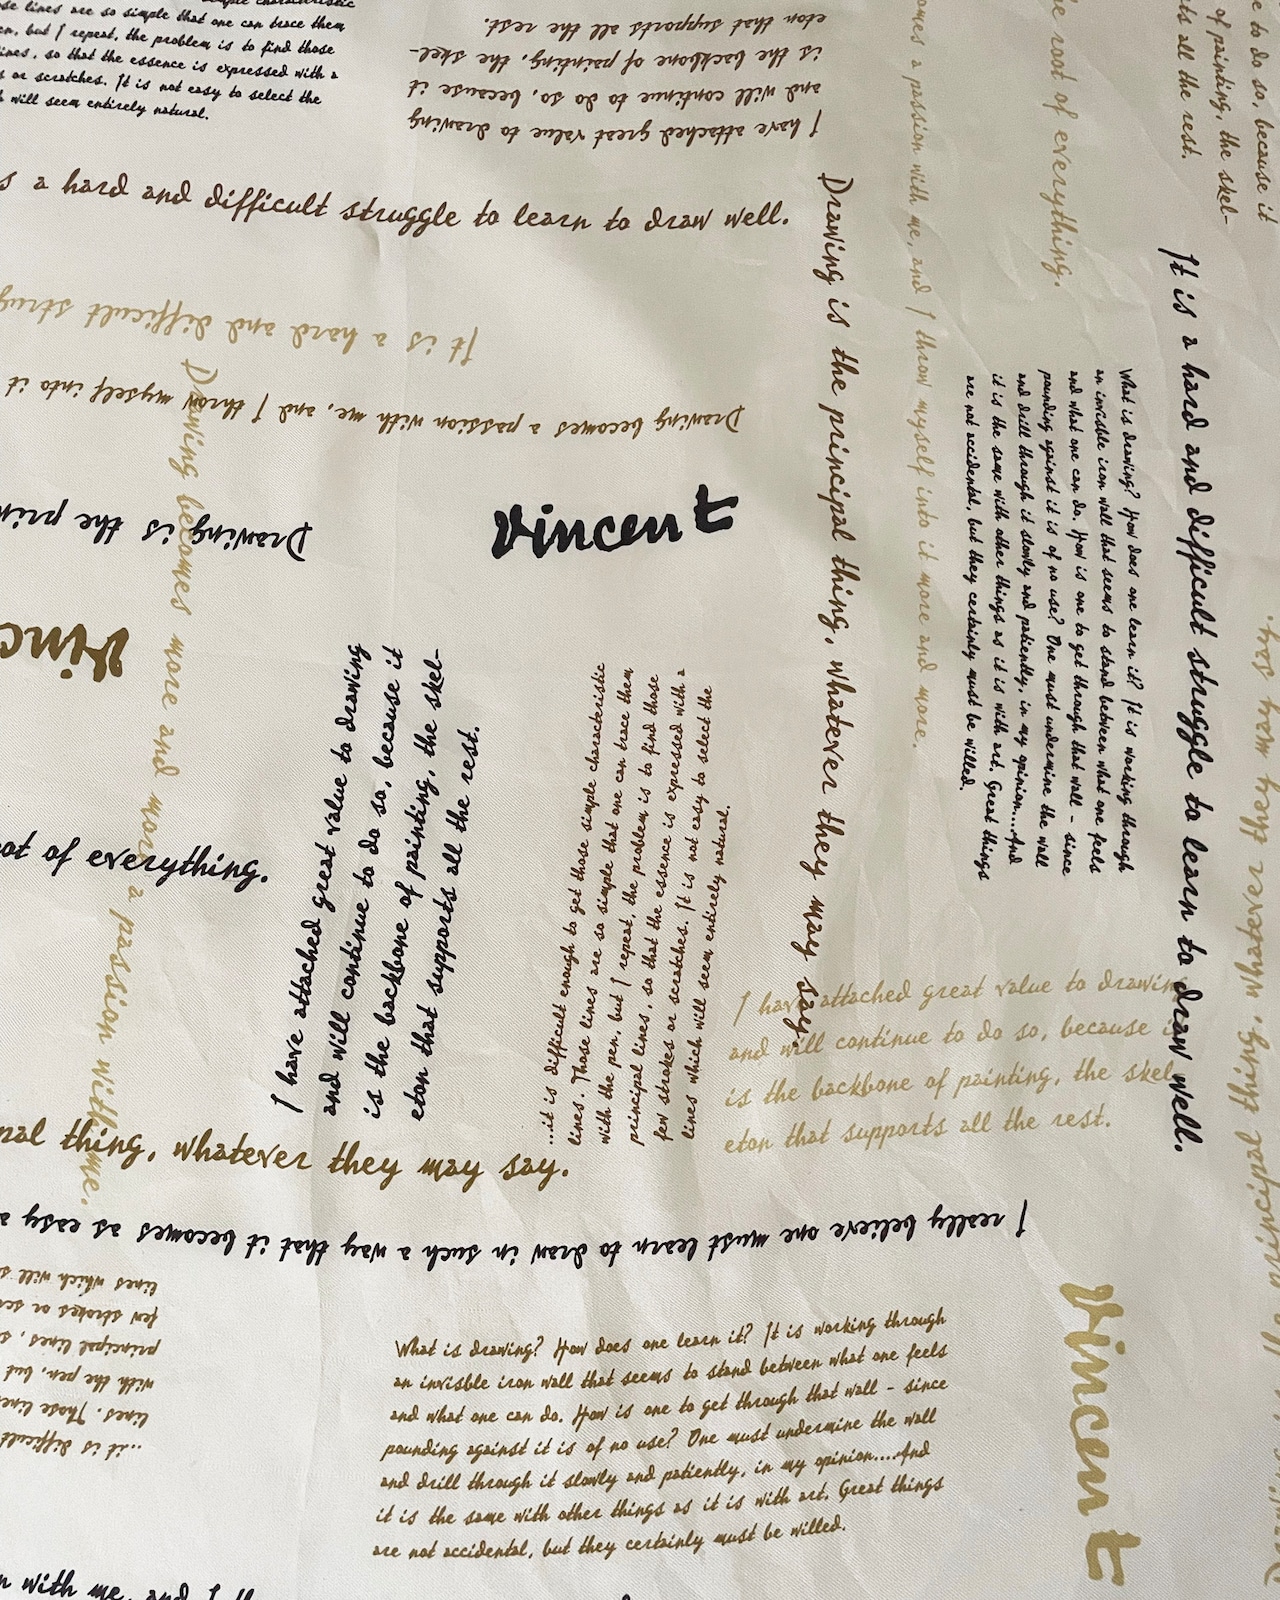 ose lines are so simple that one can trace them
en, but I repeat, the problem is to find those
lines, so that the essence is expressed with a
s or scratches. It is not easy to select the
h will seem entirely natural.
I have attached great value to drawing
and will continue to do so, because it
is the backbone of painting, the skel-
eton that supports all the rest.
s a hard and difficult struggle to learn to draw well.
It is a hard and difficult strug
Drawing becomes a passion with me, and I throw myself into it
Drawing is the prin
Vincent
Vinc
Drawing becomes more and more a passion with me.
ot of everything.
I have attached great value to drawing
and will continue to do so, because it
is the backbone of painting, the skel-
eton that supports all the rest.
...it is difficult enough to get those simple characteristic
lines. Those lines are so simple that one can trace them
with the pen, but I repeat, the problem is to find those
principal lines, so that the essence is expressed with a
few strokes or scratches. It is not easy to select the
lines which will seem entirely natural.
Drawing is the principal thing, whatever they may say.
omes a passion with me, and I throw myself into it more and more.
e root of everything.
e to do so, because it
of painting, the skel-
ts all the rest.
It is a hard and difficult struggle to learn to draw well.
What is drawing? How does one learn it? It is working through
an invisble iron wall that seems to stand between what one feels
and what one can do. How is one to get through that wall - since
pounding against it is of no use? One must undermine the wall
and drill through it slowly and patiently, in my opinion....And
it is the same with other things as it is with art. Great things
are not accidental, but they certainly must be willed.
principal thing, whatever they may say.
I have attached great value to drawing
and will continue to do so, because it
is the backbone of painting, the skel-
eton that supports all the rest.
nal thing, whatever they may say.
I really believe one must learn to draw in such a way that it becomes as easy a
...it is difficult
lines. Those line
with the pen, but
principal lines, s
few strokes or scr
lines which will s
What is drawing? How does one learn it? It is working through
an invisble iron wall that seems to stand between what one feels
and what one can do. How is one to get through that wall - since
pounding against it is of no use? One must undermine the wall
and drill through it slowly and patiently, in my opinion....And
it is the same with other things as it is with art. Great things
are not accidental, but they certainly must be willed.
Vincent
n with me, and I th